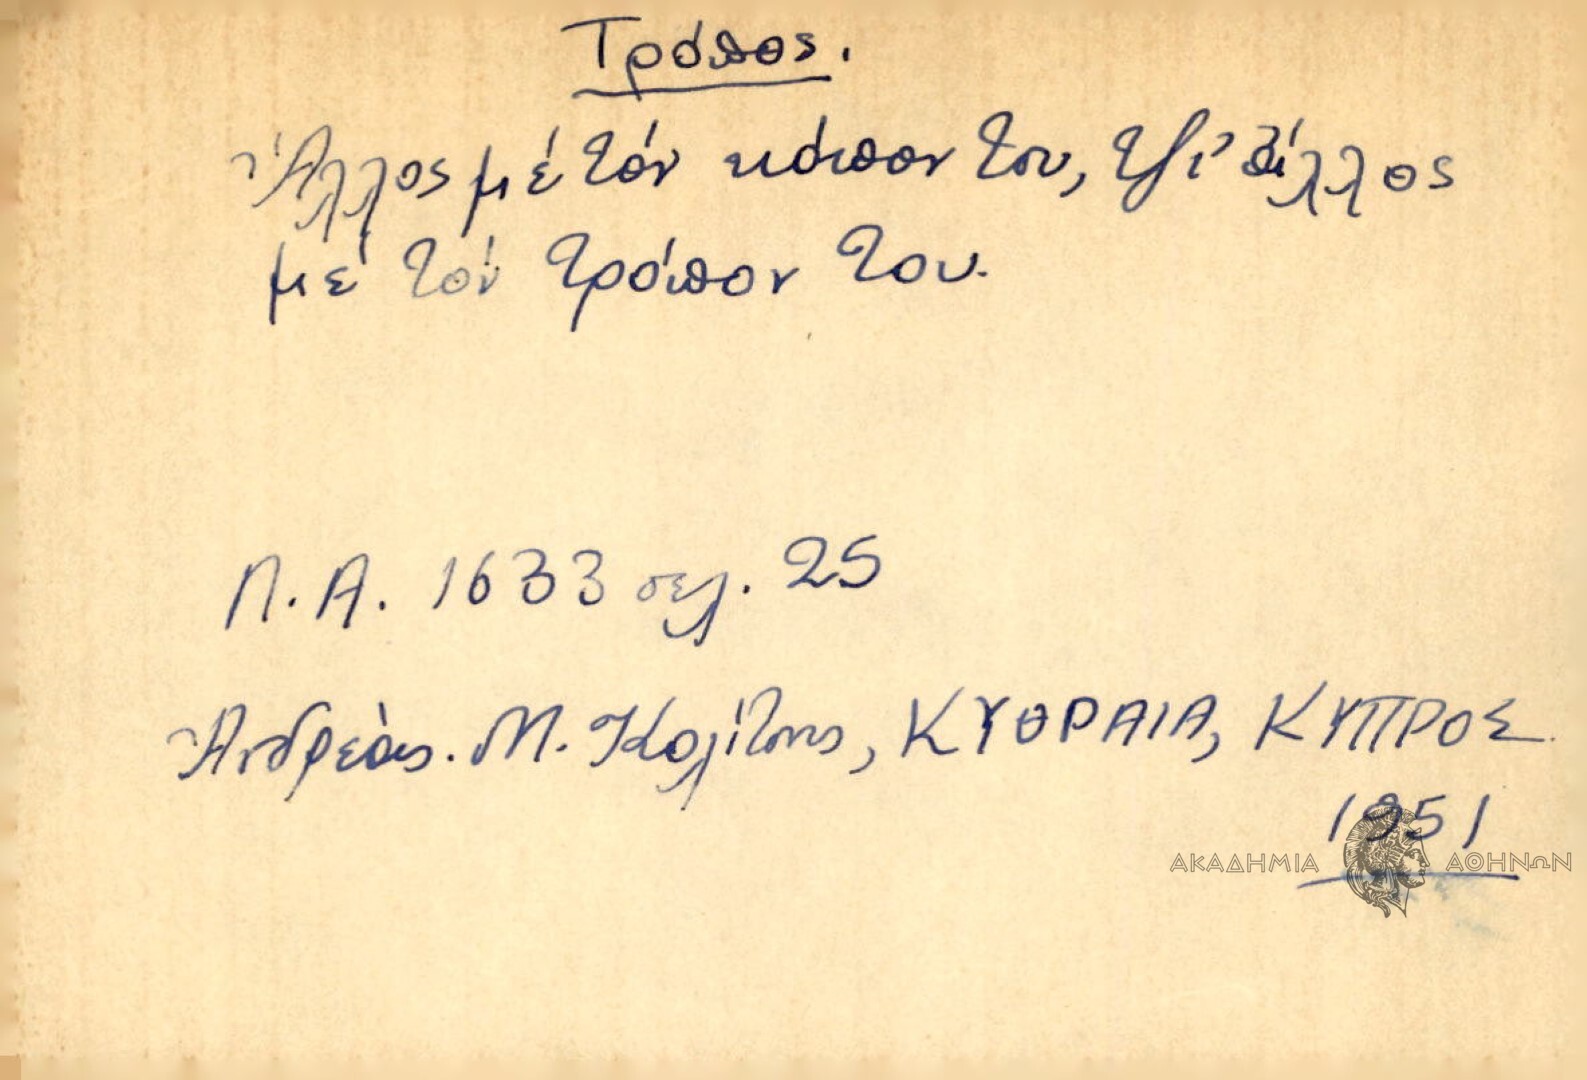 Τρόπος.
Ἄλλος μέ τόν κόπον του, τζι' ἄλλος
μέ τόν τρόπον του.
Π.Α. 1633 σελ. 25
Ἀνδρέας. Μ. Κολίτσης, ΚΥΘΡΑΙΑ, ΚΥΠΡΟΣ
1951
ΑΚΑΔΗΜΙΑ ΑΘΗΝΩΝ